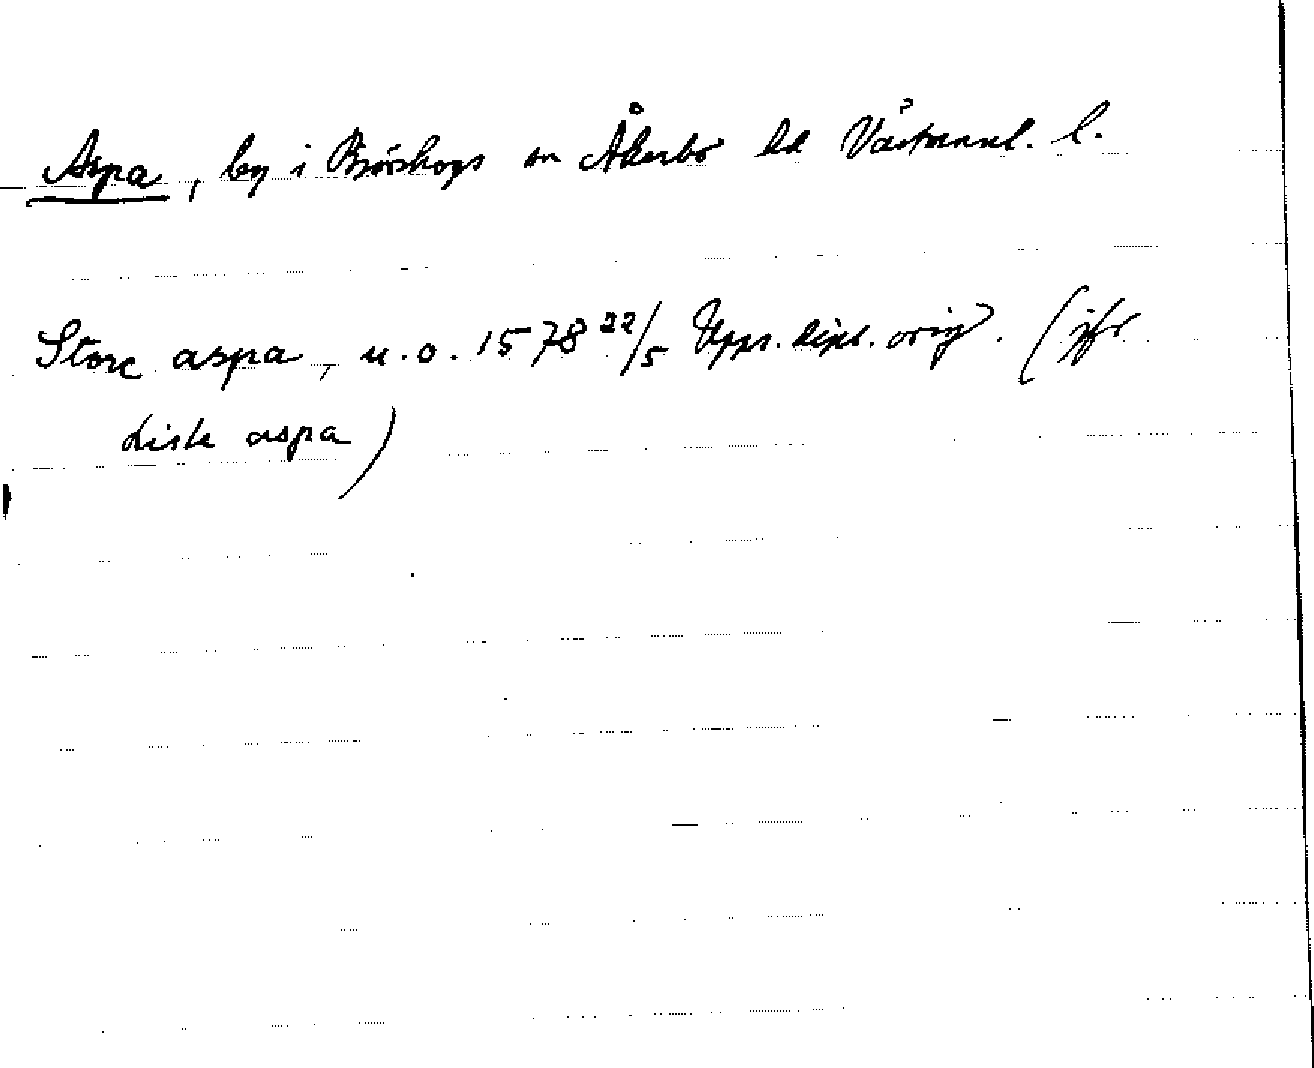 Aspa, by i Björskogs sn Åkerbo hd Västmanl. l.
Store aspa, u.o. 1578 22/5 Upps. dipl. orig. (jfr
Lisle aspa)